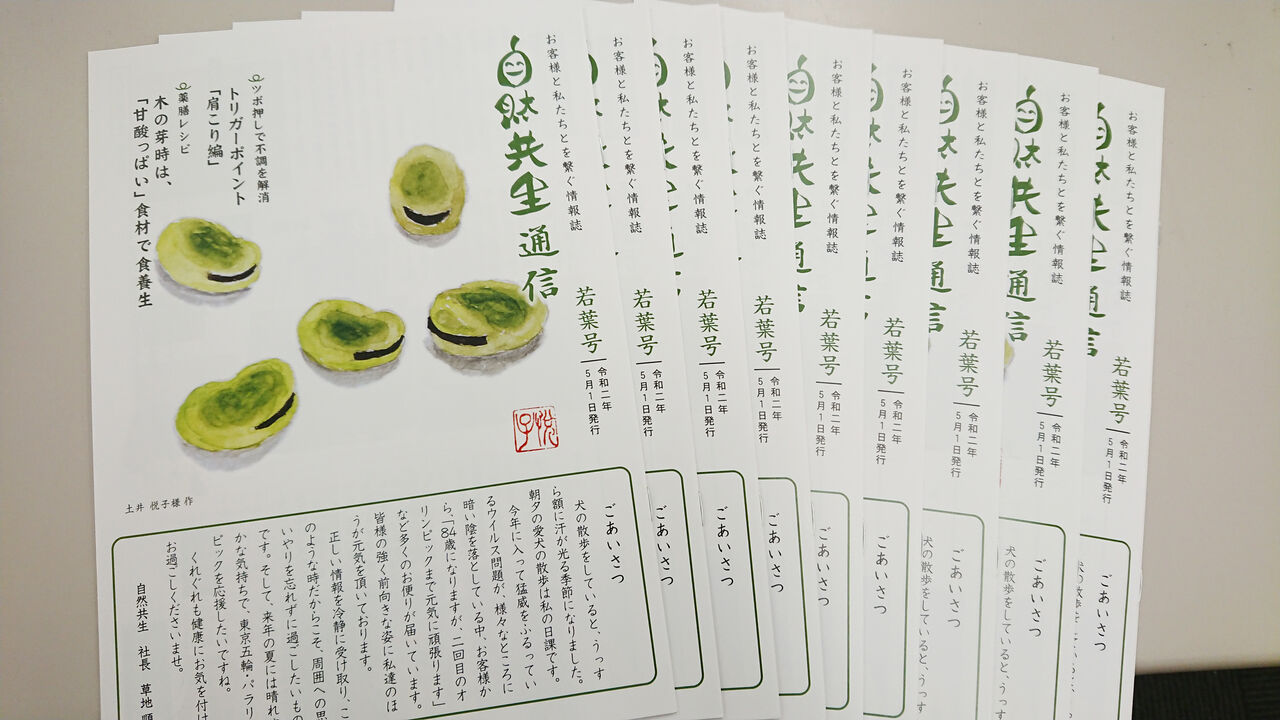 お客様と私たちとを繋ぐ情報誌
自然共生通信
若葉号
令和二年
5月1日発行
ツボ押しで不調を解消
トリガーポイント
「肩こり編」
薬膳レシピ
木の芽時は、
「甘酸っぱい」食材で食養生
悦子
土井 悦子様 作
ごあいさつ
犬の散歩をしていると、うっす
ら額に汗が光る季節になりました。
朝夕の愛犬の散歩は私の日課です。
今年に入って猛威をふるってい
るウイルス問題が、様々なところに
暗い陰を落としている中、お客様か
ら、「84歳になりますが、二回目のオ
リンピックまで元気に頑張ります」
など多くのお便りが届いています。
皆様の強く前向きな姿に私達のほ
うが元気を頂いております。
正しい情報を冷静に受け取り、こ
のような時だからこそ、周囲への思
いやりを忘れずに過ごしたいもの
です。そして、来年の夏には晴れ
かな気持ちで、東京五輪・パラリ
ピックを応援したいですね。
くれぐれも健康にお気を付け
お過ごしくださいませ。
自然共生 社長 草地
お客様と私たちとを繋ぐ情報誌
若葉号
令和二年
5月1日発行
ごあいさつ
お客様と私たちとを繋ぐ情報誌
若葉号
令和二年
5月1日発行
ごあいさつ
お客様と私たちとを繋ぐ情報誌
若葉号
令和二年
5月1日発行
ごあいさつ
お客様と私たちとを繋ぐ情報誌
自然共生通信
若葉号
令和二年
5月1日発行
ごあいさつ
お客様と私たちとを繋ぐ情報誌
自然共生通信
若葉号
令和二年
5月1日発行
ごあいさつ
お客様と私たちとを繋ぐ情報誌
自然共生通信
若葉号
令和二年
5月1日発行
ごあいさつ
犬の散歩をしていると、うっす
お客様と私たちとを繋ぐ情報誌
自然共生通信
若葉号
令和二年
5月1日発行
ごあいさつ
犬の散歩をしていると、うっす
お客様と私たちとを繋ぐ情報誌
自然共生通信
若葉号
令和二年
5月1日発行
ごあいさつ